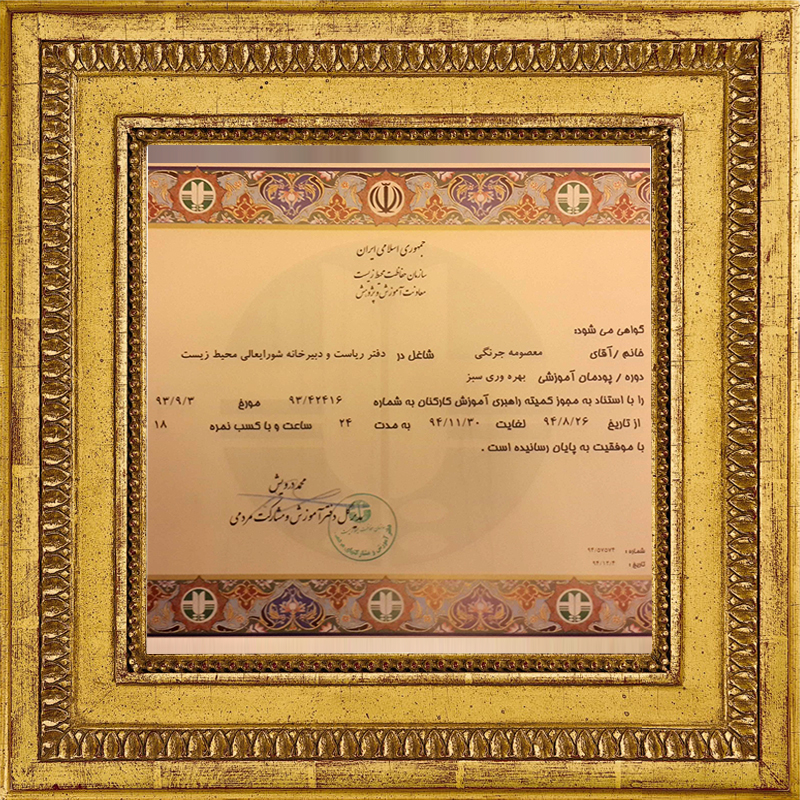 جمهوری اسلامی ایران
سازمان حفاظت محیط زیست
معاونت آموزش و پژوهش
گواهی می شود:
خانم / آقای معصومه جرنگی شاغل در دفتر ریاست و دبیرخانه شورایعالی محیط زیست
دوره / پودمان آموزشی بهره وری سبز
را با استناد به مجوز کمیته راهبری آموزش کارکنان به شماره ۹۳/۴۲۴۱۶ مورخ ۹۳/۹/۳
از تاریخ ۹۴/۸/۲۶ لغایت ۹۴/۱۱/۳۰ به مدت ۲۴ ساعت و با کسب نمره ۱۸
با موفقیت به پایان رسانیده است .
محمد درویش
مدیرکل دفتر آموزش و مشارکت مردمی
شماره: ۹۴/۵۷۵۷۴
تاریخ: ۹۴/۱۲/۴